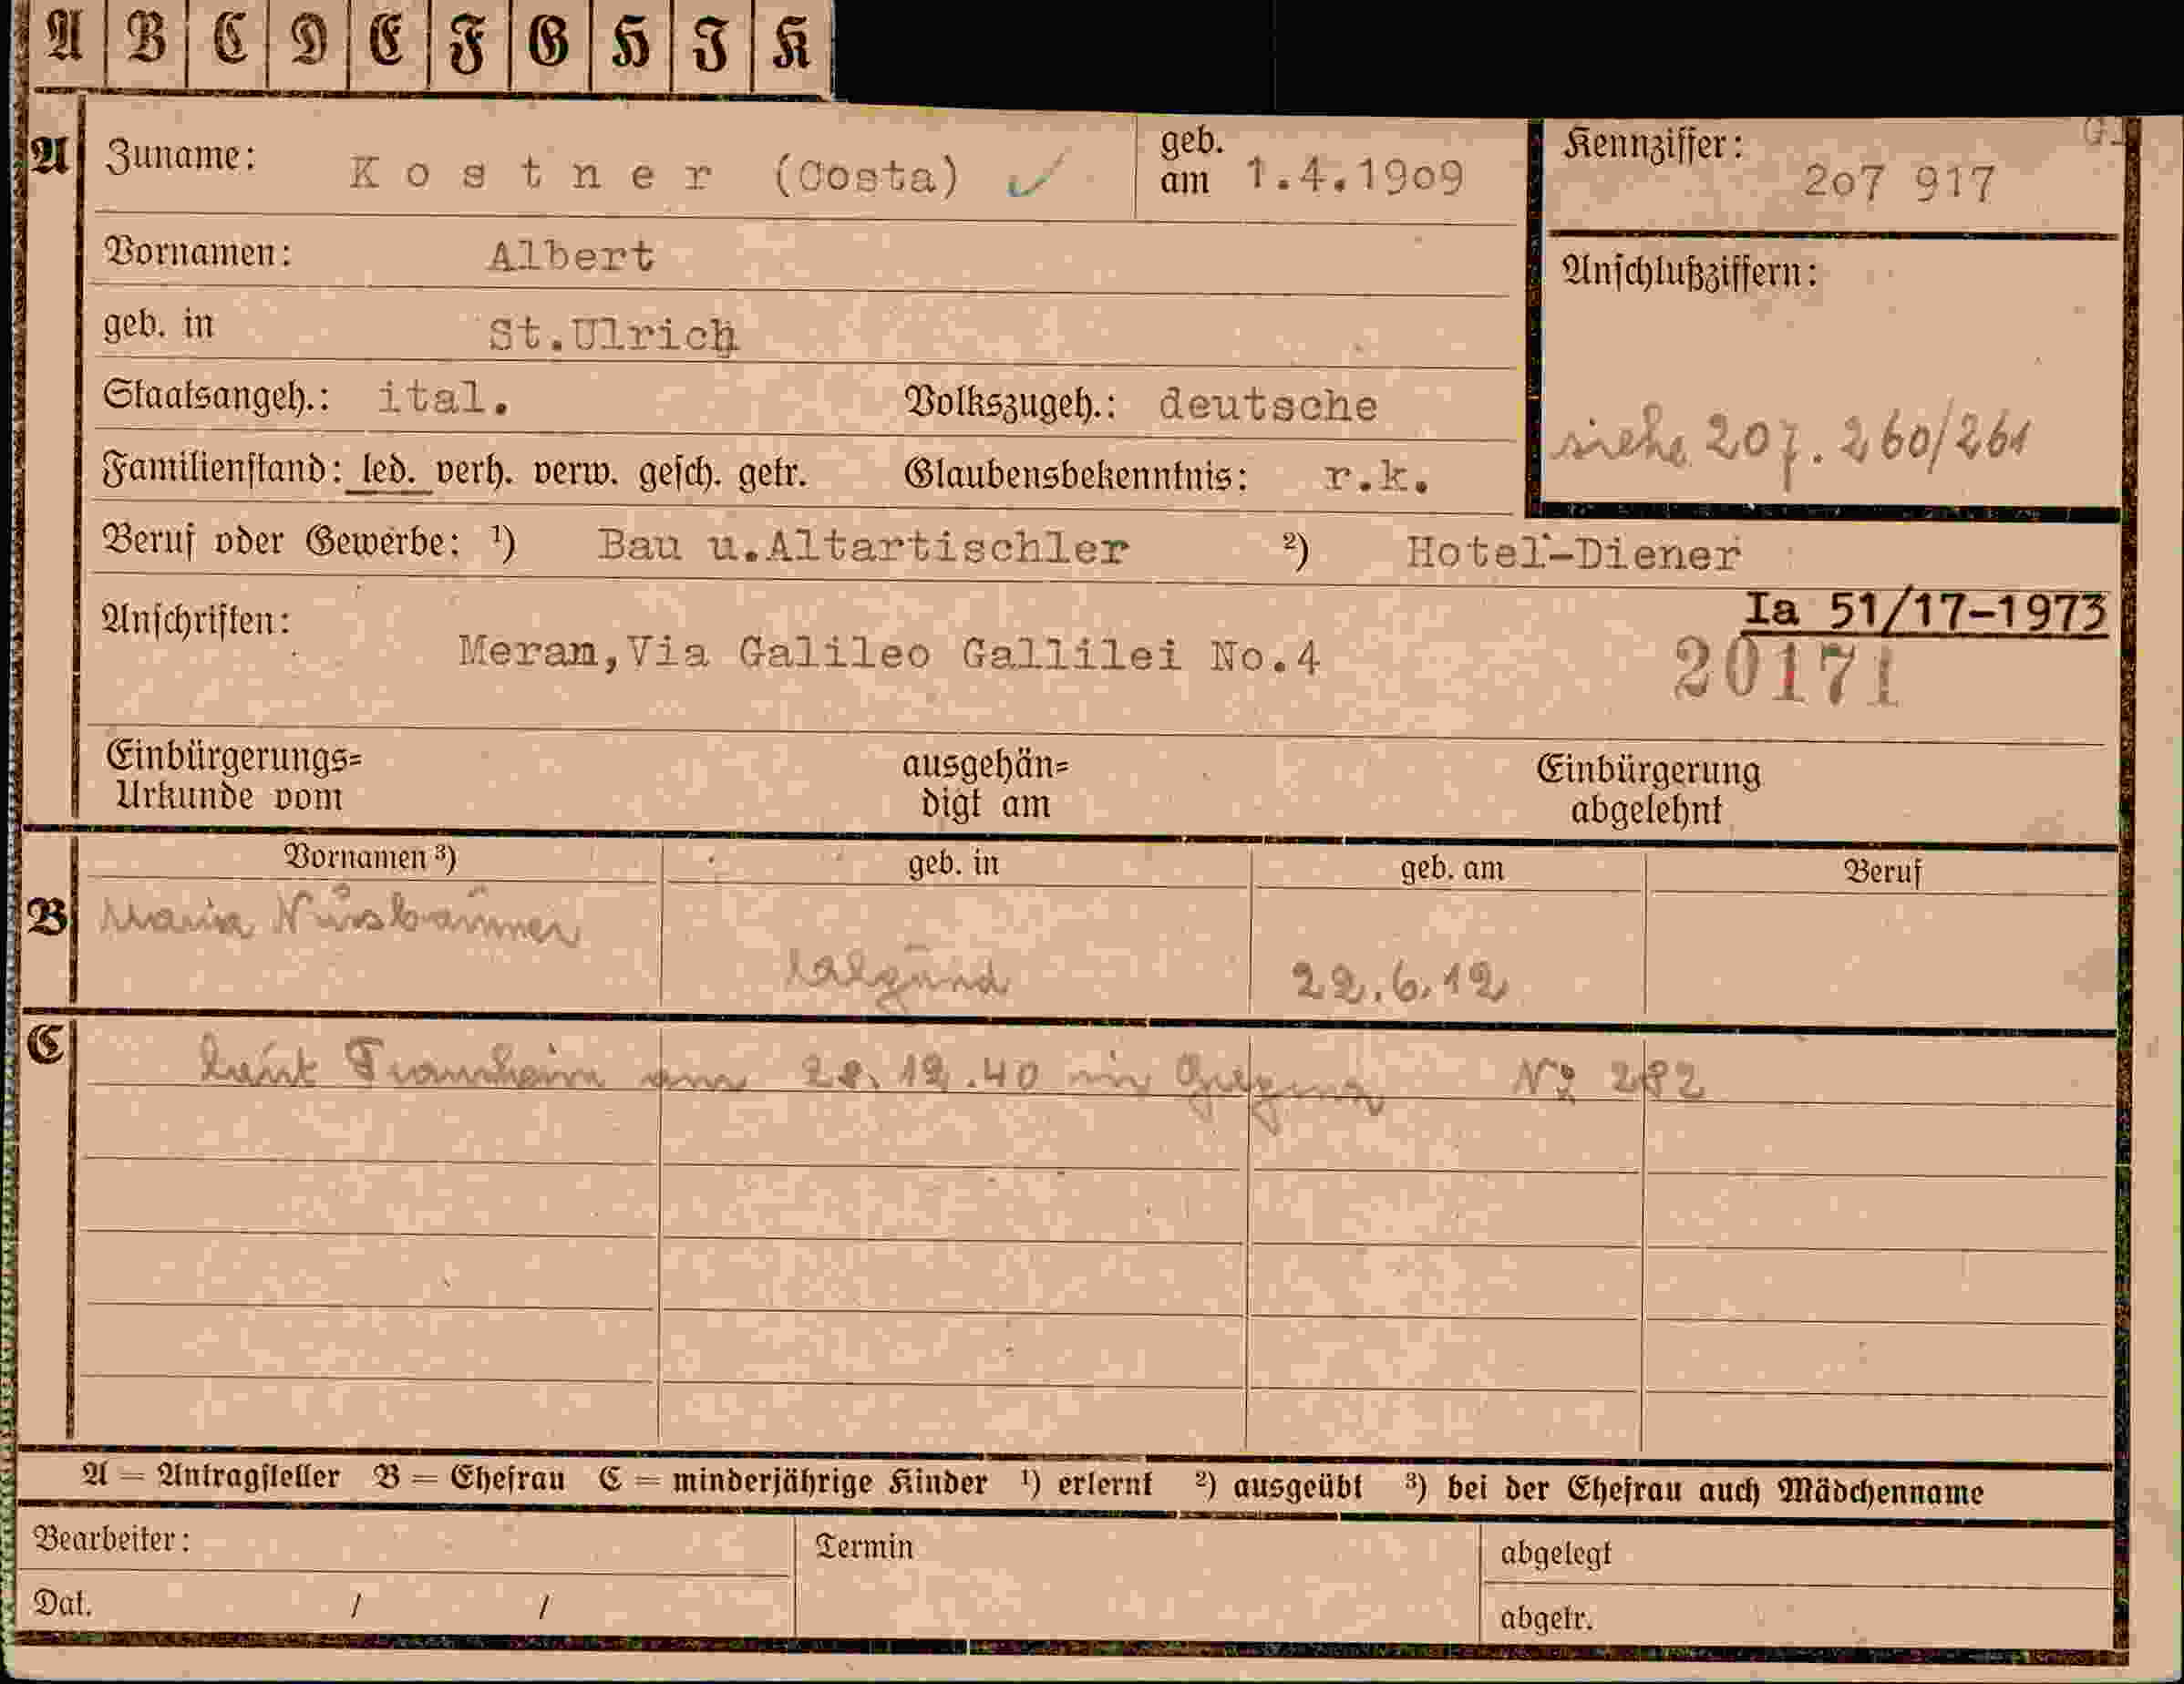 A B C D E F G H I K
A Zuname: Kostner (Costa) ✓ geb. am 1.4.1909
Kennziffer: 2o7 917
Vornamen: Albert
Anschlußziffern:
geb. in St.Ulrich
Staatsangeh.: ital. Volkszugeh.: deutsche
siehe 207.260/261
Familienstand: led. verh. verw. gesch. getr. Glaubensbekenntnis: r.k.
Beruf oder Gewerbe: ¹) Bau u.Altartischler ²) Hotel-Diener
Ia 51/17-1973
Anschriften: Meran,Via Galileo Gallilei No.4
20171
Einbürgerungs= ausgehän= Einbürgerung
Urkunde vom digt am abgelehnt
Vornamen ³) geb. in geb. am Beruf
B Maria Nussbaumer
Algund 22.6.12
C laut Trauschein am 28.12.40 in № 282
A = Antragsteller B = Ehefrau C = minderjährige Kinder ¹) erlernt ²) ausgeübt ³) bei der Ehefrau auch Mädchenname
Bearbeiter: Termin abgelegt
Dat. / / abgetr.